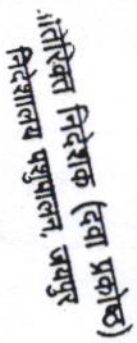 अतिरिक्त निदेशक (दवा प्रकोष्ठ)
निदेशालय पशुपालन, जयपुर